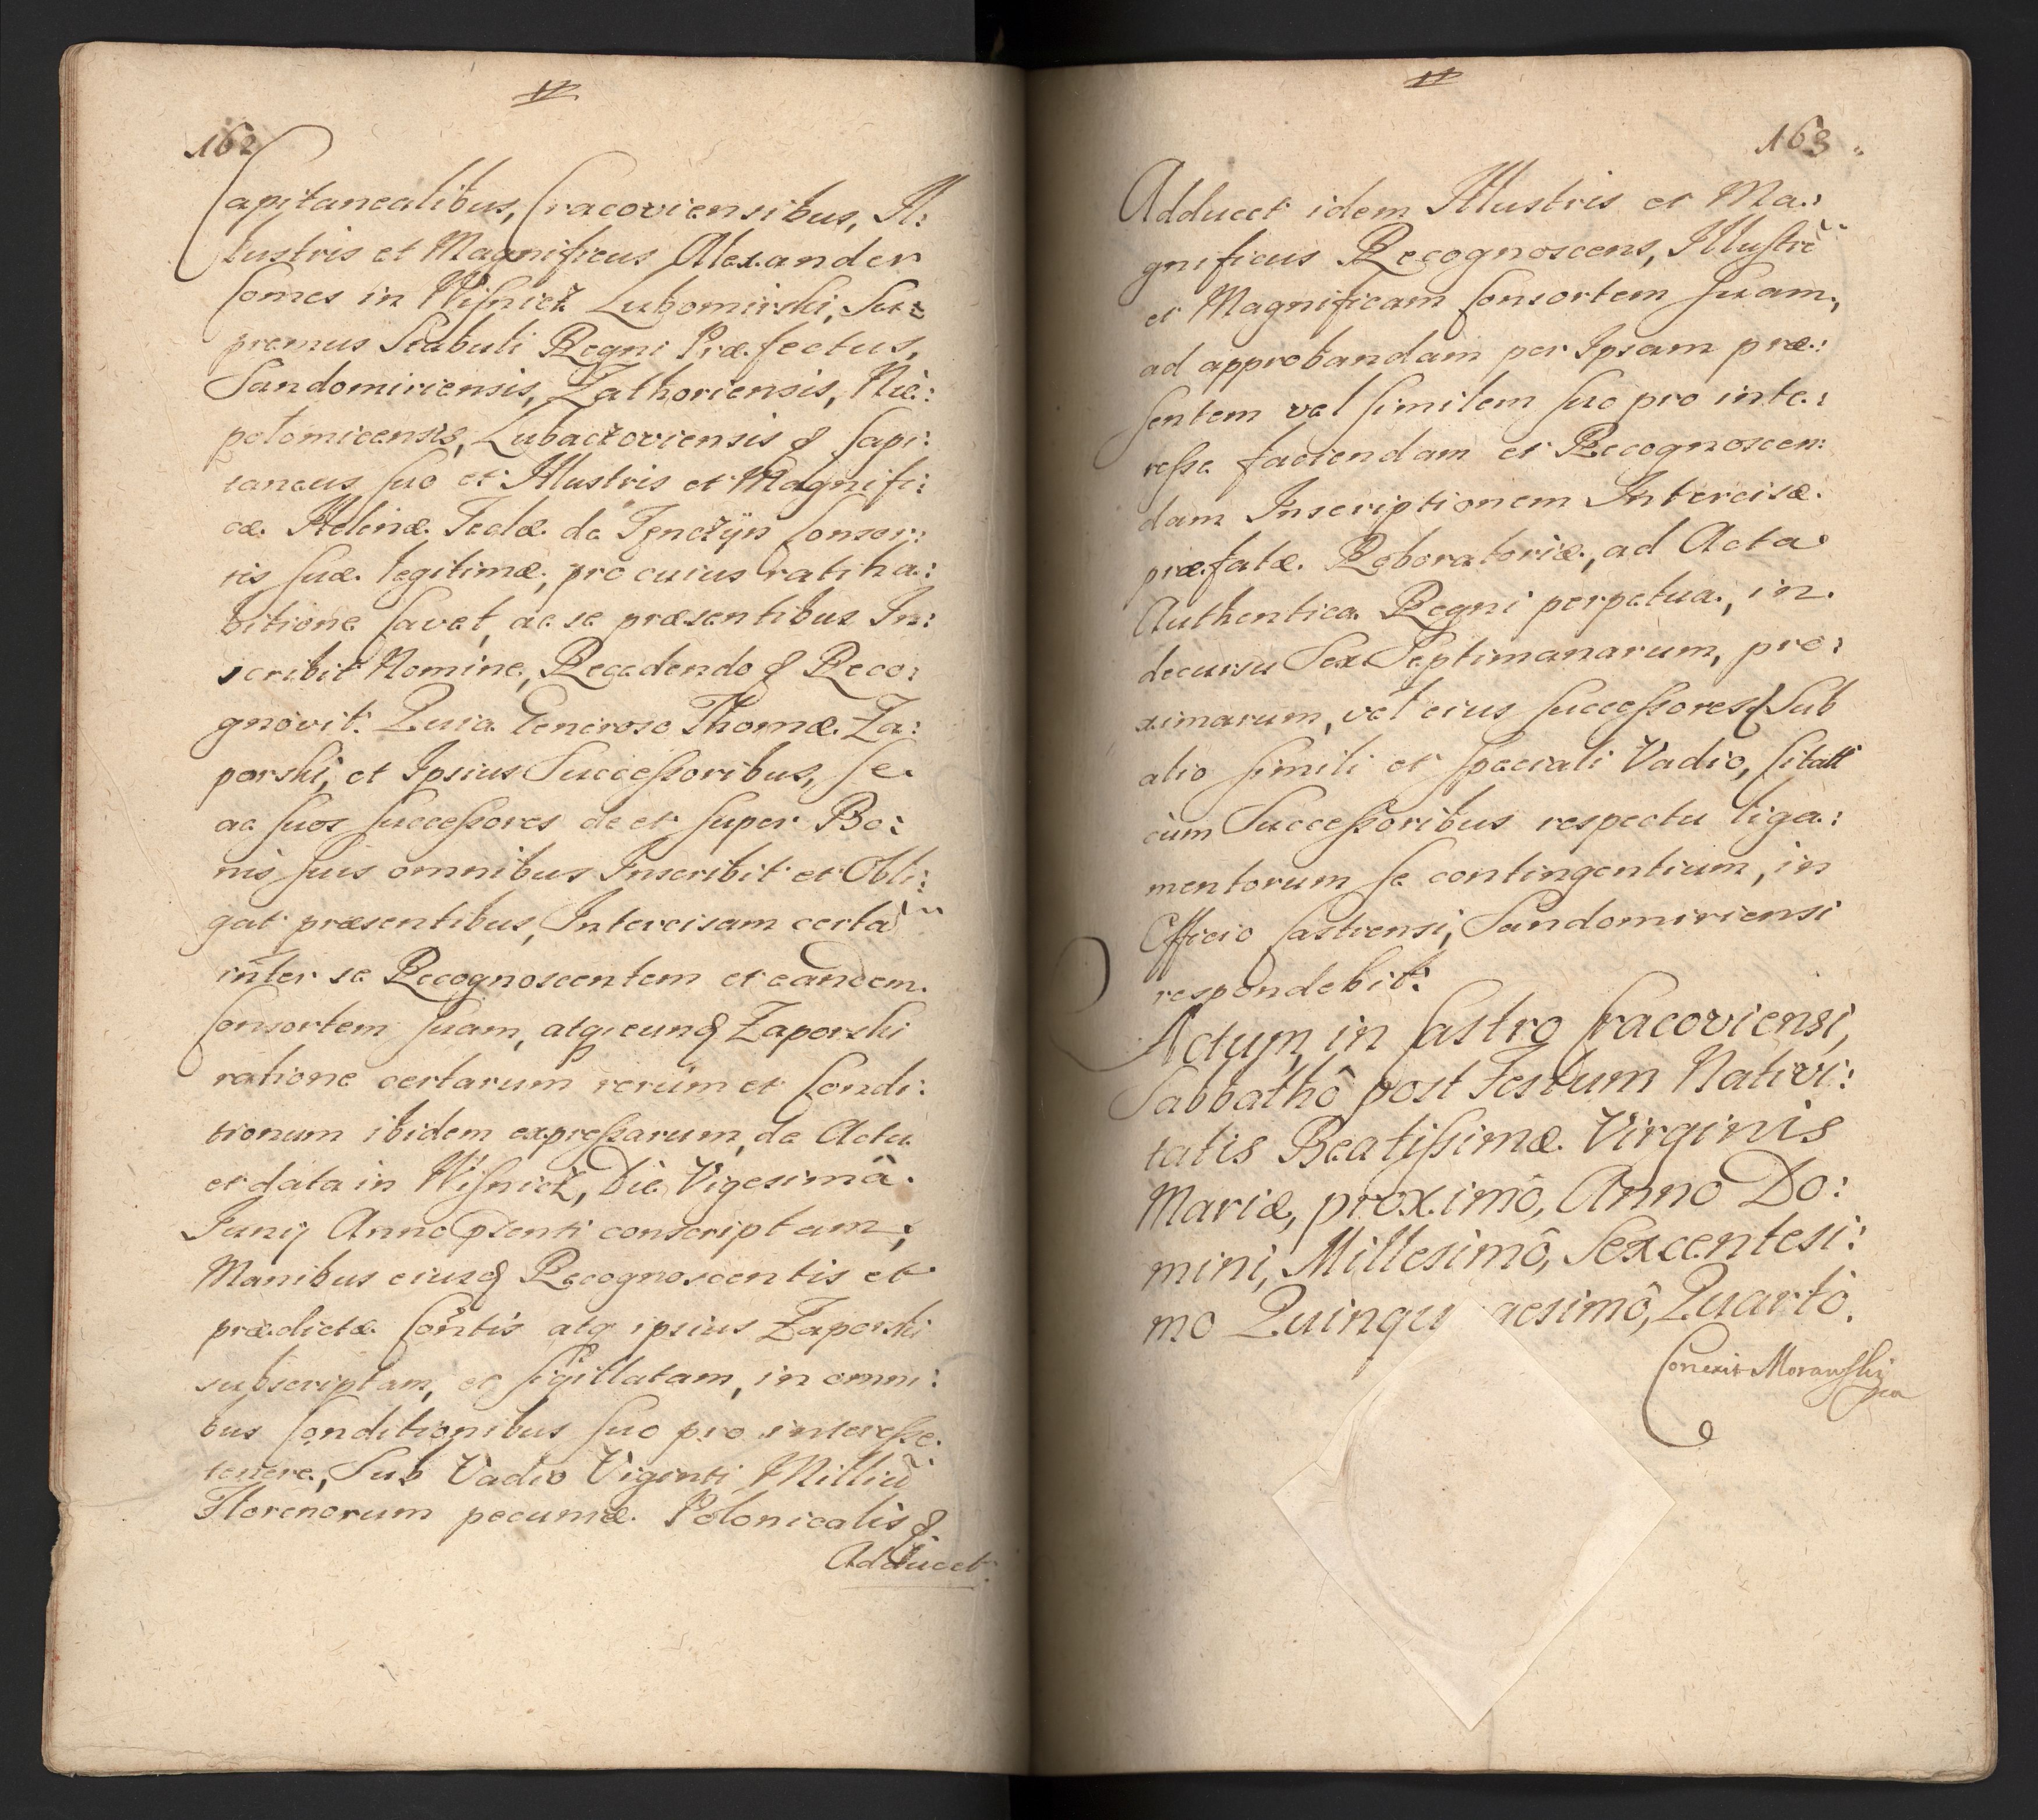 162
Capitanealibus, Cracoviensibus, Il:
lustris et Magnificus Alexander
Comes in Wisnicz Lubomirski, Su:
premus Stabuli Regni Præfectus,
Sandomiriensis, Zathoriensis, Nie:
polomicensis, Lubaczoviensis & Capi:
taneus suo et Illustris et Magnifi:
cæ Helenæ Teclæ de Tęnczÿn Consor:
tis suæ legitimæ, pro cuius ratiha:
bitione Cavet, ac se præsentibus In:
scribit Nomine, Recedendo & Reco:
gnovit. Quia Generoso Thomæ Za:
porski, et Ipsius Successoribus, se
ac suos successores de et super Bo:
nis suis omnibus Inscribit et Obli:
gat præsentibus, Intercisam certã
inter se Recognoscentem et eandem
Consortem suam, atq; eunq Zaporski
ratione certarum rerum et Condi:
tionum ibidem expressarum, de Actu
et data in Wisnicz, Die Vigesimâ
Junij Anno pſenti conscriptam,
Manibus eiusq Recognoscentis et
prædictæ Contis atq ipsius Zaporski
subscriptam, et sigillatam, in omni:
bus Conditionibus suo pro interesse
tenere, Sub Vadio Viginti Milliũ
Florenorum pecuniæ Polonicalis &
Adducet
163
Adducet idem Illustris et Ma:
gnificus Recognoscens, Illustrẽ
et Magnificam Consortem suam,
ad approbandam per Ipsam præ:
sentem vel similem suo pro inte:
resse faciendam et Recognoscen:
dam Inscriptionem Intercisæ
præfatæ Roboratoriæ, ad Acta
Authentica Regni perpetua, in
decursu Sex Septimanarum, pro:
ximarum, vel eius successores Sub
alio simili et speciali Vadio, Citatt
cum Successoribus respectu liga:
mentorum se contingentium, in
Officio Castrensi, Sandomiriensi
respondebit:
Actum, in Castro Cracoviensi,
Sabbathô post Festum Nativi:
tatis Beatissimæ Virginis
Mariæ, proximô, Anno Do:
mini, Millesimô, Sexcentesi:
mo Quinqu gesimô, Quartô.
Correxit Morawski